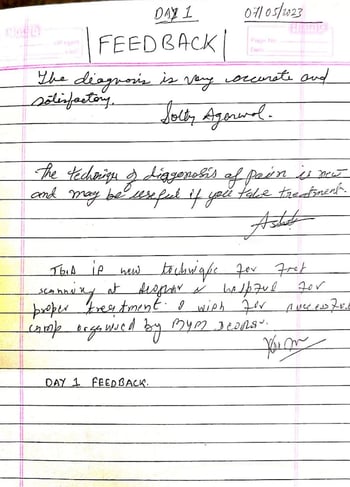 DAY 1 07/05/2023
FEEDBACK
The diagnosis is very accurate and
satisfactory.
Agarwal.
The technique of diggonosis of pain is new
and may be useful if you take treatment.
This is new technique for
scanning at helpful for
proper treatment. I wish for successful
camp organised by
DAY 1 FEEDBACK.